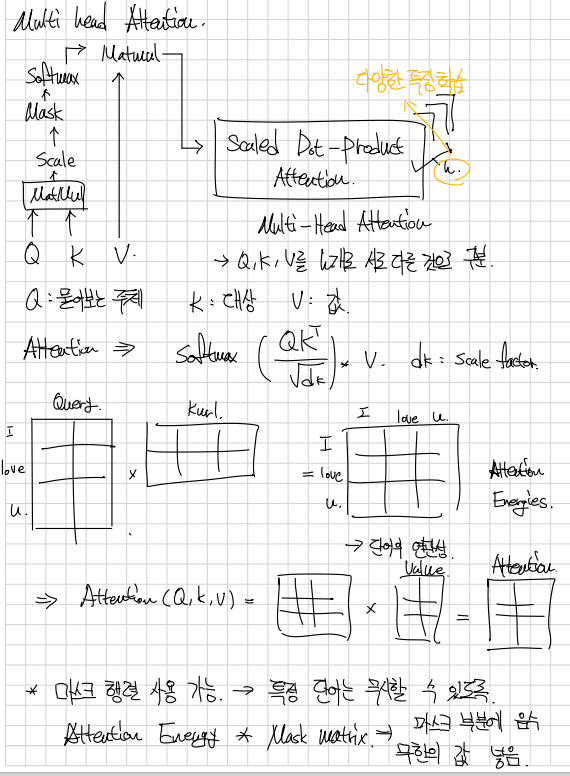 Multi head Attention.
Matmul
Softmax
Mask
Scale
MatMul
Q K V.
다양한 특징 학습
h.
Scaled Dot-Product
Attention.
Multi-Head Attention
→ Q, K, V를 h개로 서로 다른 것으로 구분.
Q : 물어보는 주체 K : 대상 V : 값
Attention ⇒ Softmax (QK^T / √dk) * V. dk : scale factor.
Query.
I
love
u.
×
I love u.
I
= love
u.
Attention
Energies.
→ 단어의 연관성.
Value. Attention
⇒ Attention (Q, K, V) = × =
* 마스크 행렬 사용 가능. → 특정 단어는 무시할 수 있도록.
Attention Energy * Mask matrix. → 마스크 부분에 음수
무한의 값 넣음.